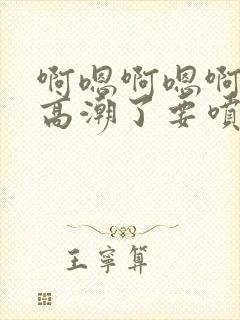 啊嗯啊嗯啊
高潮了要喷
王宁算